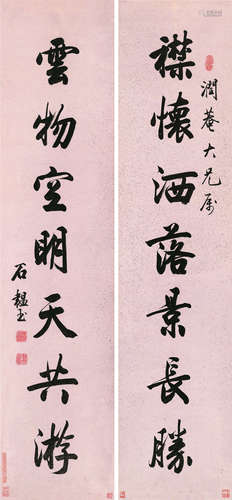 襟懷洒落景長勝
潤菴大兄属
雲物空明天共游
石韞玉